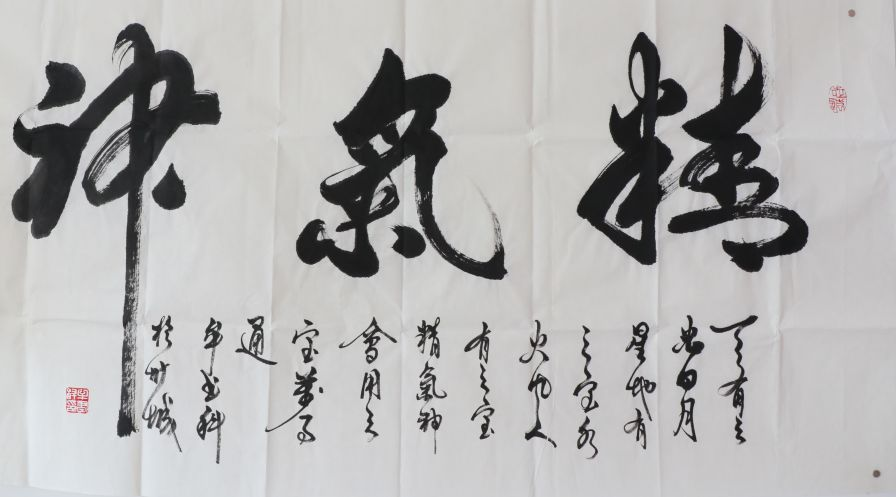 精氣神
天有三
宝日月
星地有
三宝水
火风人
有三宝
精氣神
會用三
宝萬事
通
书科
於城